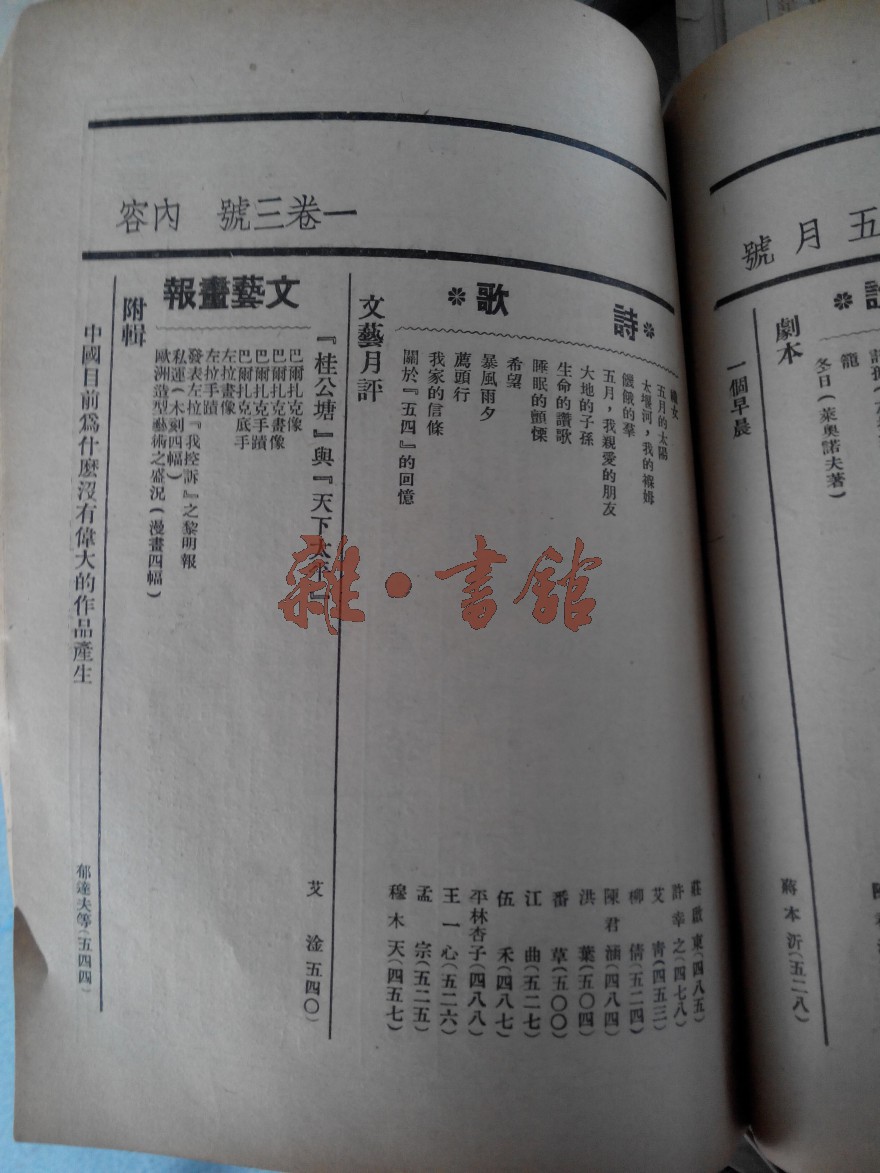 五月號
籠
冬日(萊奧諾夫著)
劇本
一個早晨 蔣本沂(五二八)
一卷三號 內容
詩歌
女 莊啟東(四八五)
五月的太陽 許幸之(四七八)
大堰河，我的褓姆 艾青(四五三)
饑餓的羣 柳倩(五二四)
五月，我親愛的朋友 陳君涵(四八四)
大地的子孫 洪葉(五〇四)
生命的讚歌 番草(五〇〇)
睡眠的顫慄 江曲(五二七)
希望 伍禾(四八七)
暴風雨夕 平林杏子(四八八)
薦頭行 王一心(五二六)
我家的信條 孟宗(五二五)
關於『五四』的回憶 穆木天(四五七)
文藝月評
『桂公塘』與『天下太平』 艾淦 五四〇)
文藝畫報
巴爾扎克像
巴爾扎克畫像
巴爾扎克手蹟
巴爾扎克底手
左拉畫像
左拉手蹟
發表左拉『我控訴』之黎明報
私運(木刻四幅)
歐洲造型藝術之盛況(漫畫四幅)
附輯
中國目前爲什麼沒有偉大的作品產生 郁達夫等(五四四)
雜·書館